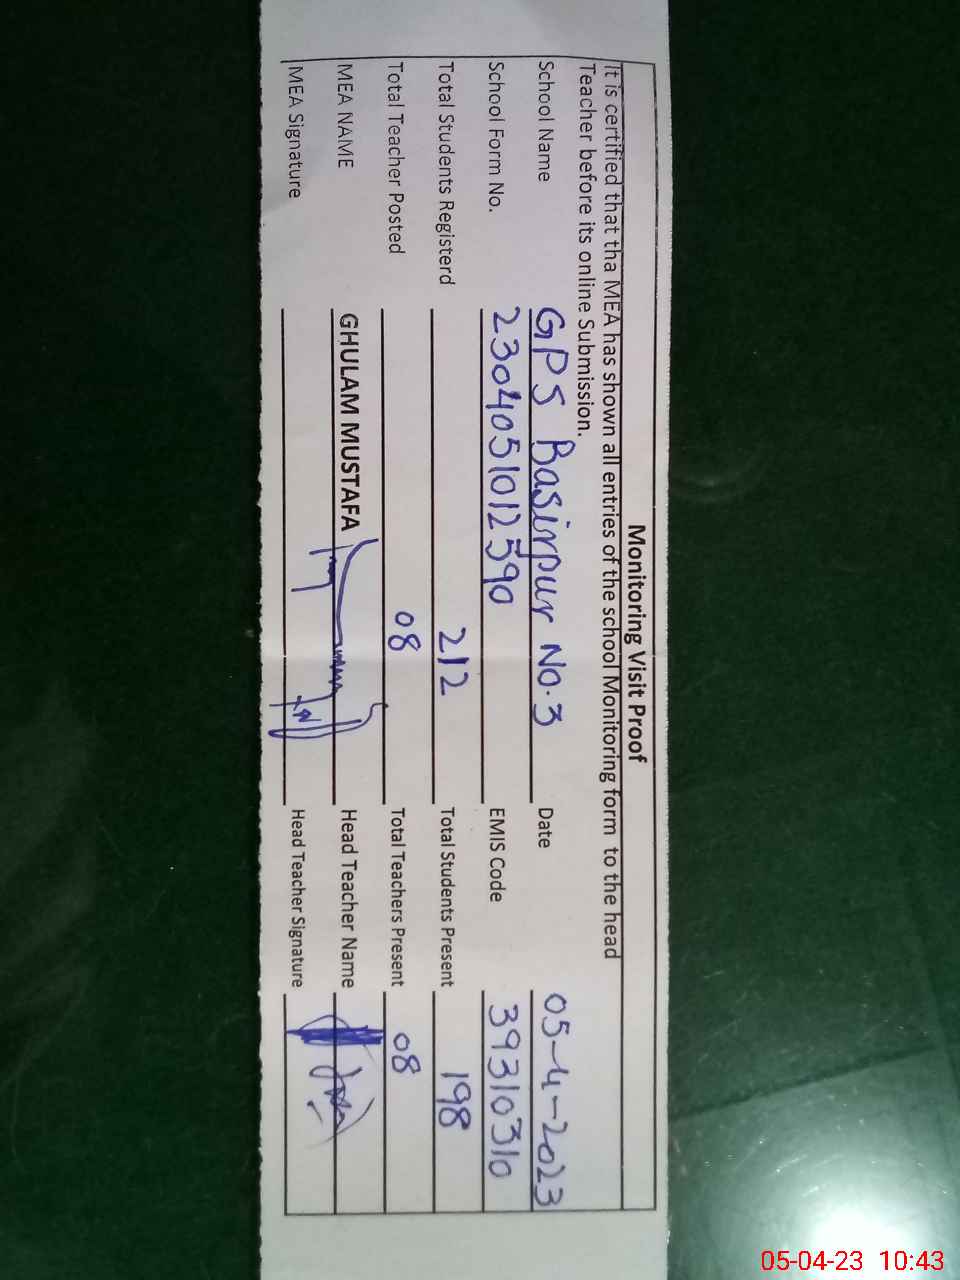 Monitoring Visit Proof
It is certified that tha MEA has shown all entries of the school Monitoring form to the head
Teacher before its online Submission.
School Name GPS Basirpur No.3 Date 05-4-2023
School Form No. 2304051012590 EMIS Code 39310310
Total Students Registerd 212 Total Students Present 198
Total Teacher Posted 08 Total Teachers Present 08
MEA NAME GHULAM MUSTAFA Head Teacher Name
MEA Signature Head Teacher Signature
05-04-23 10:43